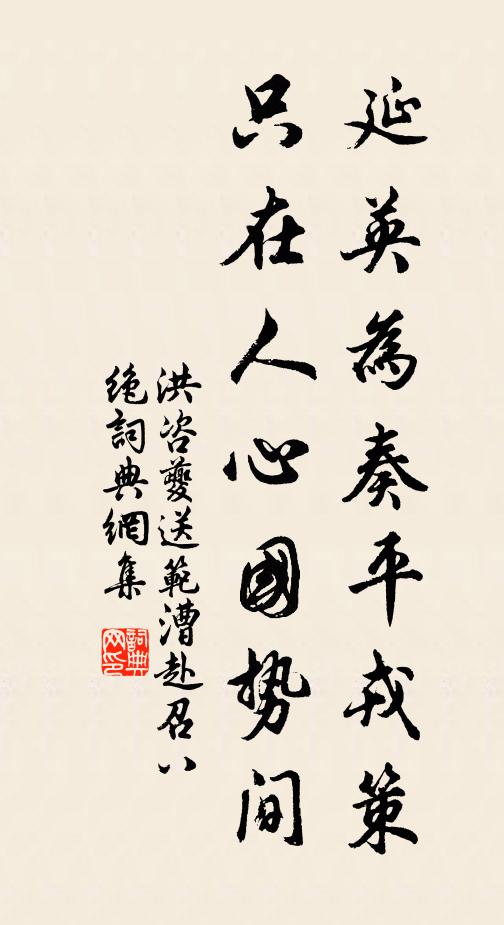 延英為奏平戎策
只在人心國勢間
洪咨夔送範漕赴召八
絶詞典網集
詞典
网印